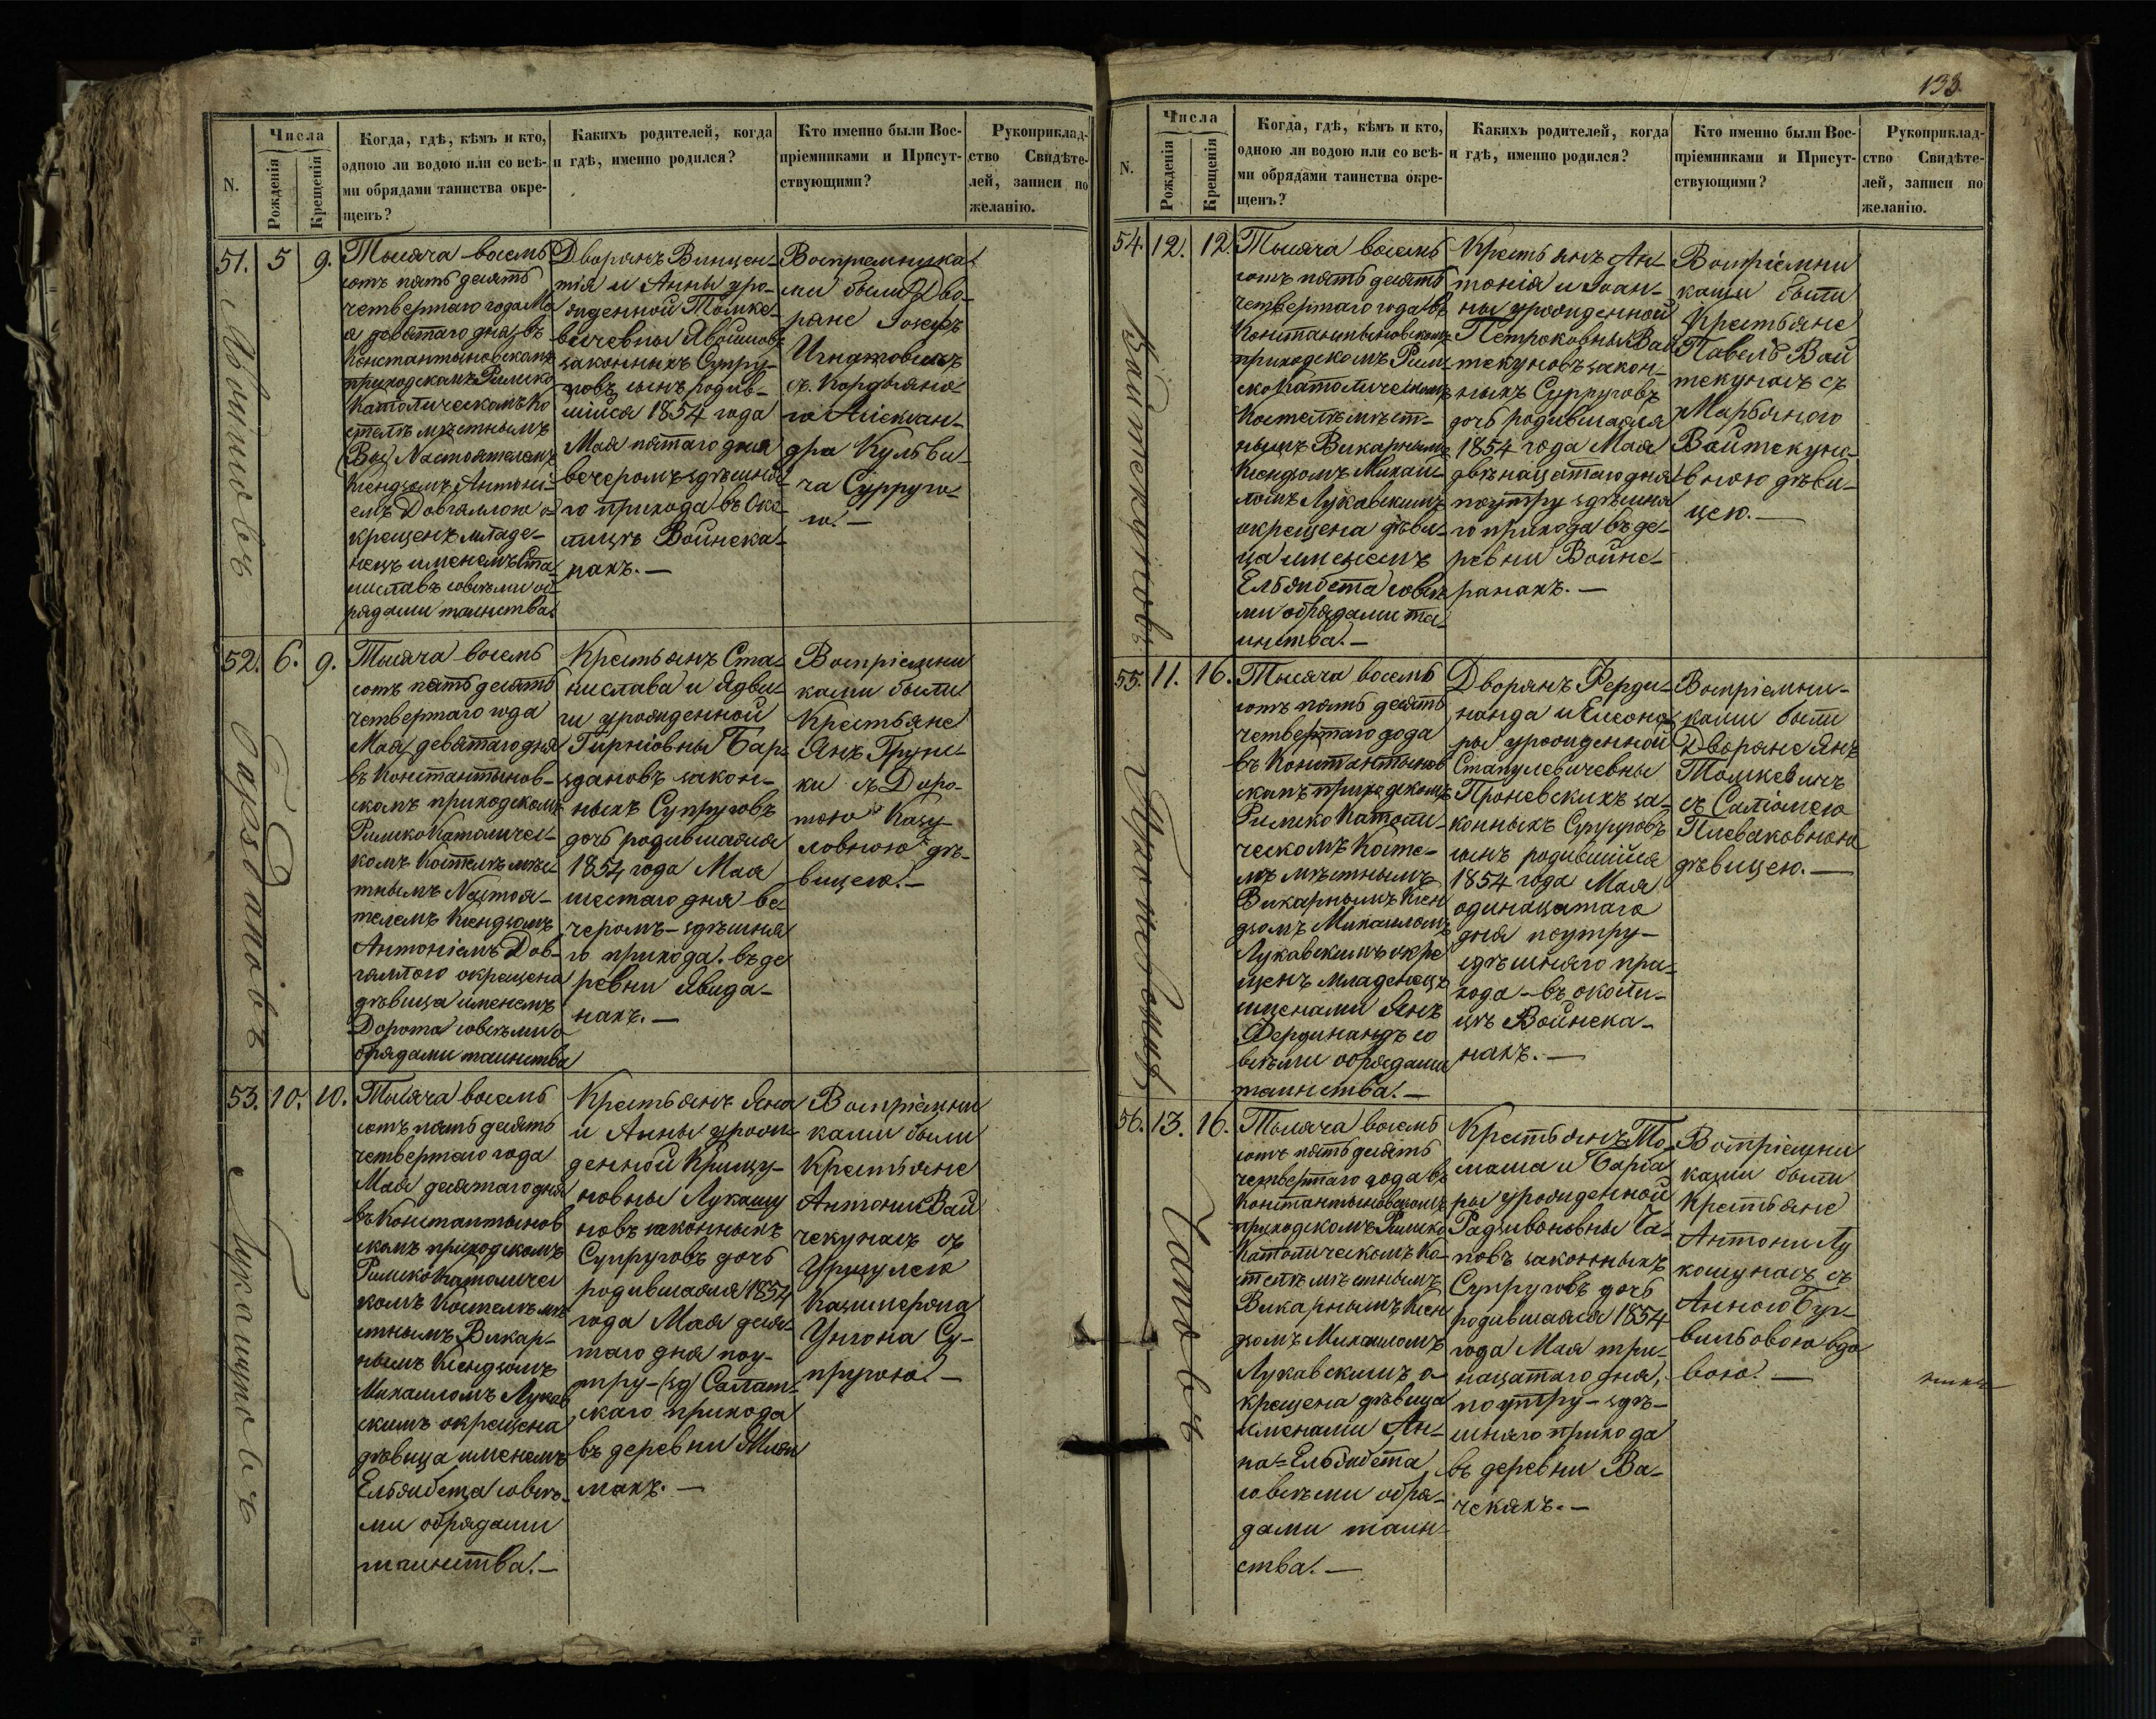 N.
Числа
Рожденія
Крещенія
Когда, гдѣ, кѣмъ и кто,
одною ли водою или со всѣ-
ми обрядами таинства окре-
щенъ?
Какихъ родителей, когда
и гдѣ, именно родился?
Кто именно были Вос-
пріемниками и Присут-
ствующими?
Рукоприклад-
ство Свидѣте-
лей, записи по
желанію.
51. 5 9.
Тысяча восемь
сотъ пять десятъ
четвертаго года Ма
я девятаго дня въ
Константыновскомъ
приходскомъ Римско
Католическомъ Ко
стелѣ мѣстнымъ
Настоятелемъ
Ксендзомъ Антоні-
емъ Довгяллою о-
крещенъ младе-
нецъ именемъ Ста-
ниславъ совсѣми об-
рядами таинства.
Дворянъ Винцен-
тія и Анны уро-
жденной Томке-
вичевны
законныхъ Супру-
говъ сынъ родив-
шійся 1854 года
Мая пятаго дня
вечеромъ здѣшня-
го прихода въ Око-
лицѣ Войнека-
нахъ. —
Воспріемника-
ми были Дво-
ряне Іосифъ
Игнатовичъ
съ
го Алексан-
дра Кульви-
ча Супруго-
ю. —
52. 6. 9.
Тысяча восемь
сотъ пять десятъ
четвертаго года
Мая девятаго дня
въ Константынов-
скомъ приходскомъ
Римско Католичес-
комъ Костелѣ мѣс-
тнымъ Настоя-
телемъ Ксендзомъ
Антоніемъ Дов-
гяллою окрещена
дѣвица именемъ
Дорота совсѣми о-
брядами таинства
Крестьянъ Ста-
нислава и Ядви-
ги урожденной
Гирніовны Бар-
здановъ закон-
ныхъ Супруговъ
дочь родившаяся
1854 года Мая
шестаго дня ве-
черомъ — здѣшня
го прихода въ де
ревни Явида-
нахъ. —
Воспріемни
ками были
Крестьяне
Янъ
съ Доро-
тою
ловною дѣ-
вицею. —
Барздановъ
53. 10. 10.
Тысяча восемь
сотъ пять десятъ
четвертаго года
Мая десятаго дня
въ Константынов
скомъ приходскомъ
Римско Католичес
комъ Костелѣ мѣ-
стнымъ Викар-
нымъ Ксендзомъ
Михаиломъ Лукав
скимъ окрещена
дѣвица именемъ
Ельзибета совсѣ-
ми обрядами
таинства. —
Крестьянъ Яна
и Анны урож-
денной
новны Лукашу
новъ законныхъ
Супруговъ дочь
родившаяся 1854
года Мая деся-
таго дня поу-
тру — Салат-
скаго прихода
въ деревни
махъ. —
Воспріемни
ками были
Крестьяне
Антони Вай
чекунасъ съ
Уршулею
Казимерова
Унгона Су-
пругою. —
Лукашуновъ
133
N.
Числа
Рожденія
Крещенія
Когда, гдѣ, кѣмъ и кто,
одною ли водою или со всѣ-
ми обрядами таинства окре-
щенъ?
Какихъ родителей, когда
и гдѣ, именно родился?
Кто именно были Вос-
пріемниками и Присут-
ствующими?
Рукоприклад-
ство Свидѣте-
лей, записи по
желанію.
54. 12. 12.
Тысяча восемь
сотъ пять десятъ
четвертаго года въ
Константыновскомъ
приходскомъ Рим-
ско Католическомъ
Костелѣ мѣст-
нымъ Викарнымъ
Ксендзомъ Михаи-
ломъ Лукавскимъ
окрещена дѣви-
ца именемъ
Ельзибета совсѣ-
ми обрядами та-
инства. —
Крестьянъ Ан-
тонія и Іоан-
ны урожденной
Петроковны Вай
текуновъ закон-
ныхъ Супруговъ
дочь родившаяся
1854 года Мая
двѣнацатаго дня
поутру здѣшня
го прихода въ де-
ревни Войне-
ранахъ. —
Воспріемни
ками были
Крестьяне
Павелъ Вай
текунасъ съ
Марьяною
Вайтекуно-
вною дѣви-
цею. —
Вайтекуновъ
55. 11. 16.
Тысяча восемь
сотъ пять десятъ
четвертаго года
въ Константынов
скомъ приходскомъ
Римско Католи-
ческомъ Косте-
лѣ мѣстнымъ
Викарнымъ Ксен
дзомъ Михаиломъ
Лукавскимъ окре
щенъ младенецъ
именами Янъ
Фердинандъ со
всѣми обрядами
таинства. —
Дворянъ Ферди-
нанда и Елеоно-
ры урожденной
Стапулевичевны
Проневскихъ за-
конныхъ Супруговъ
сынъ родившійся
1854 года Мая
одинацатаго
дня поутру —
здѣшняго при-
хода — въ околи-
цѣ Войнека-
нахъ. —
Воспріемни-
ками были
Дворяне Янъ
Томкевичъ
съ Саломеею
Плеваковною
дѣвицею. —
56. 13. 16.
Тысяча восемь
сотъ пять десятъ
четвертаго года въ
Константыновскомъ
приходскомъ Римско
Католическомъ Ко-
стелѣ мѣстнымъ
Викарнымъ Ксен
дзомъ Михаиломъ
Лукавскимъ о-
крещена дѣвица
именами Ан-
на-Ельзибета
совсѣми обря-
дами таин-
ства. —
Крестьянъ То-
маша и Барба
ры урожденной
Радзивоновны Ча-
повъ законныхъ
Супруговъ дочь
родившаяся 1854
года Мая три-
нацатаго дня,
поутру — здѣ-
шняго прихода
въ деревни Ва-
чекяхъ. —
Воспріемни
ками были
Крестьяне
Антони Лу
кошунасъ съ
Анною Бут-
вильовою вдо
вою. —
Чаповъ